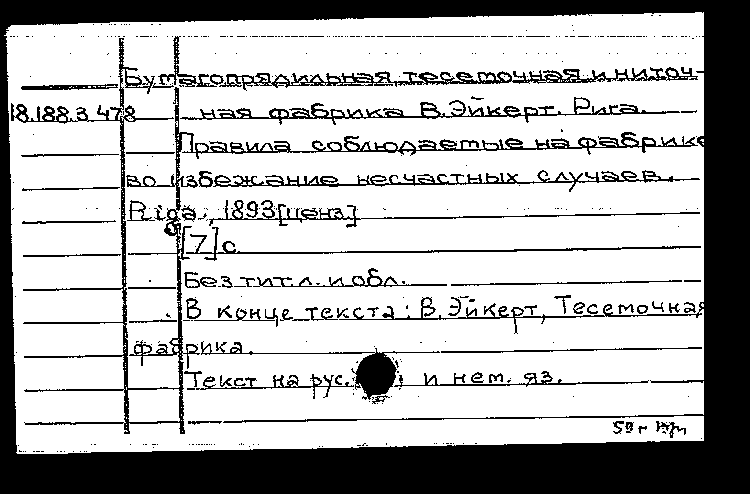 Бумагопрядильная, тесемочная и ниточ-
18.188.3.478 ная фабрика В. Эйкерт. Рига.
Правила соблюдаемые на фабрике
во избежание несчастных случаев.
Riga, 1893 [ценз]
[7] с.
Без тит. л. и обл.
В конце текста: В. Эйкерт, Тесемочная
фабрика.
Текст на рус. и нем. яз.